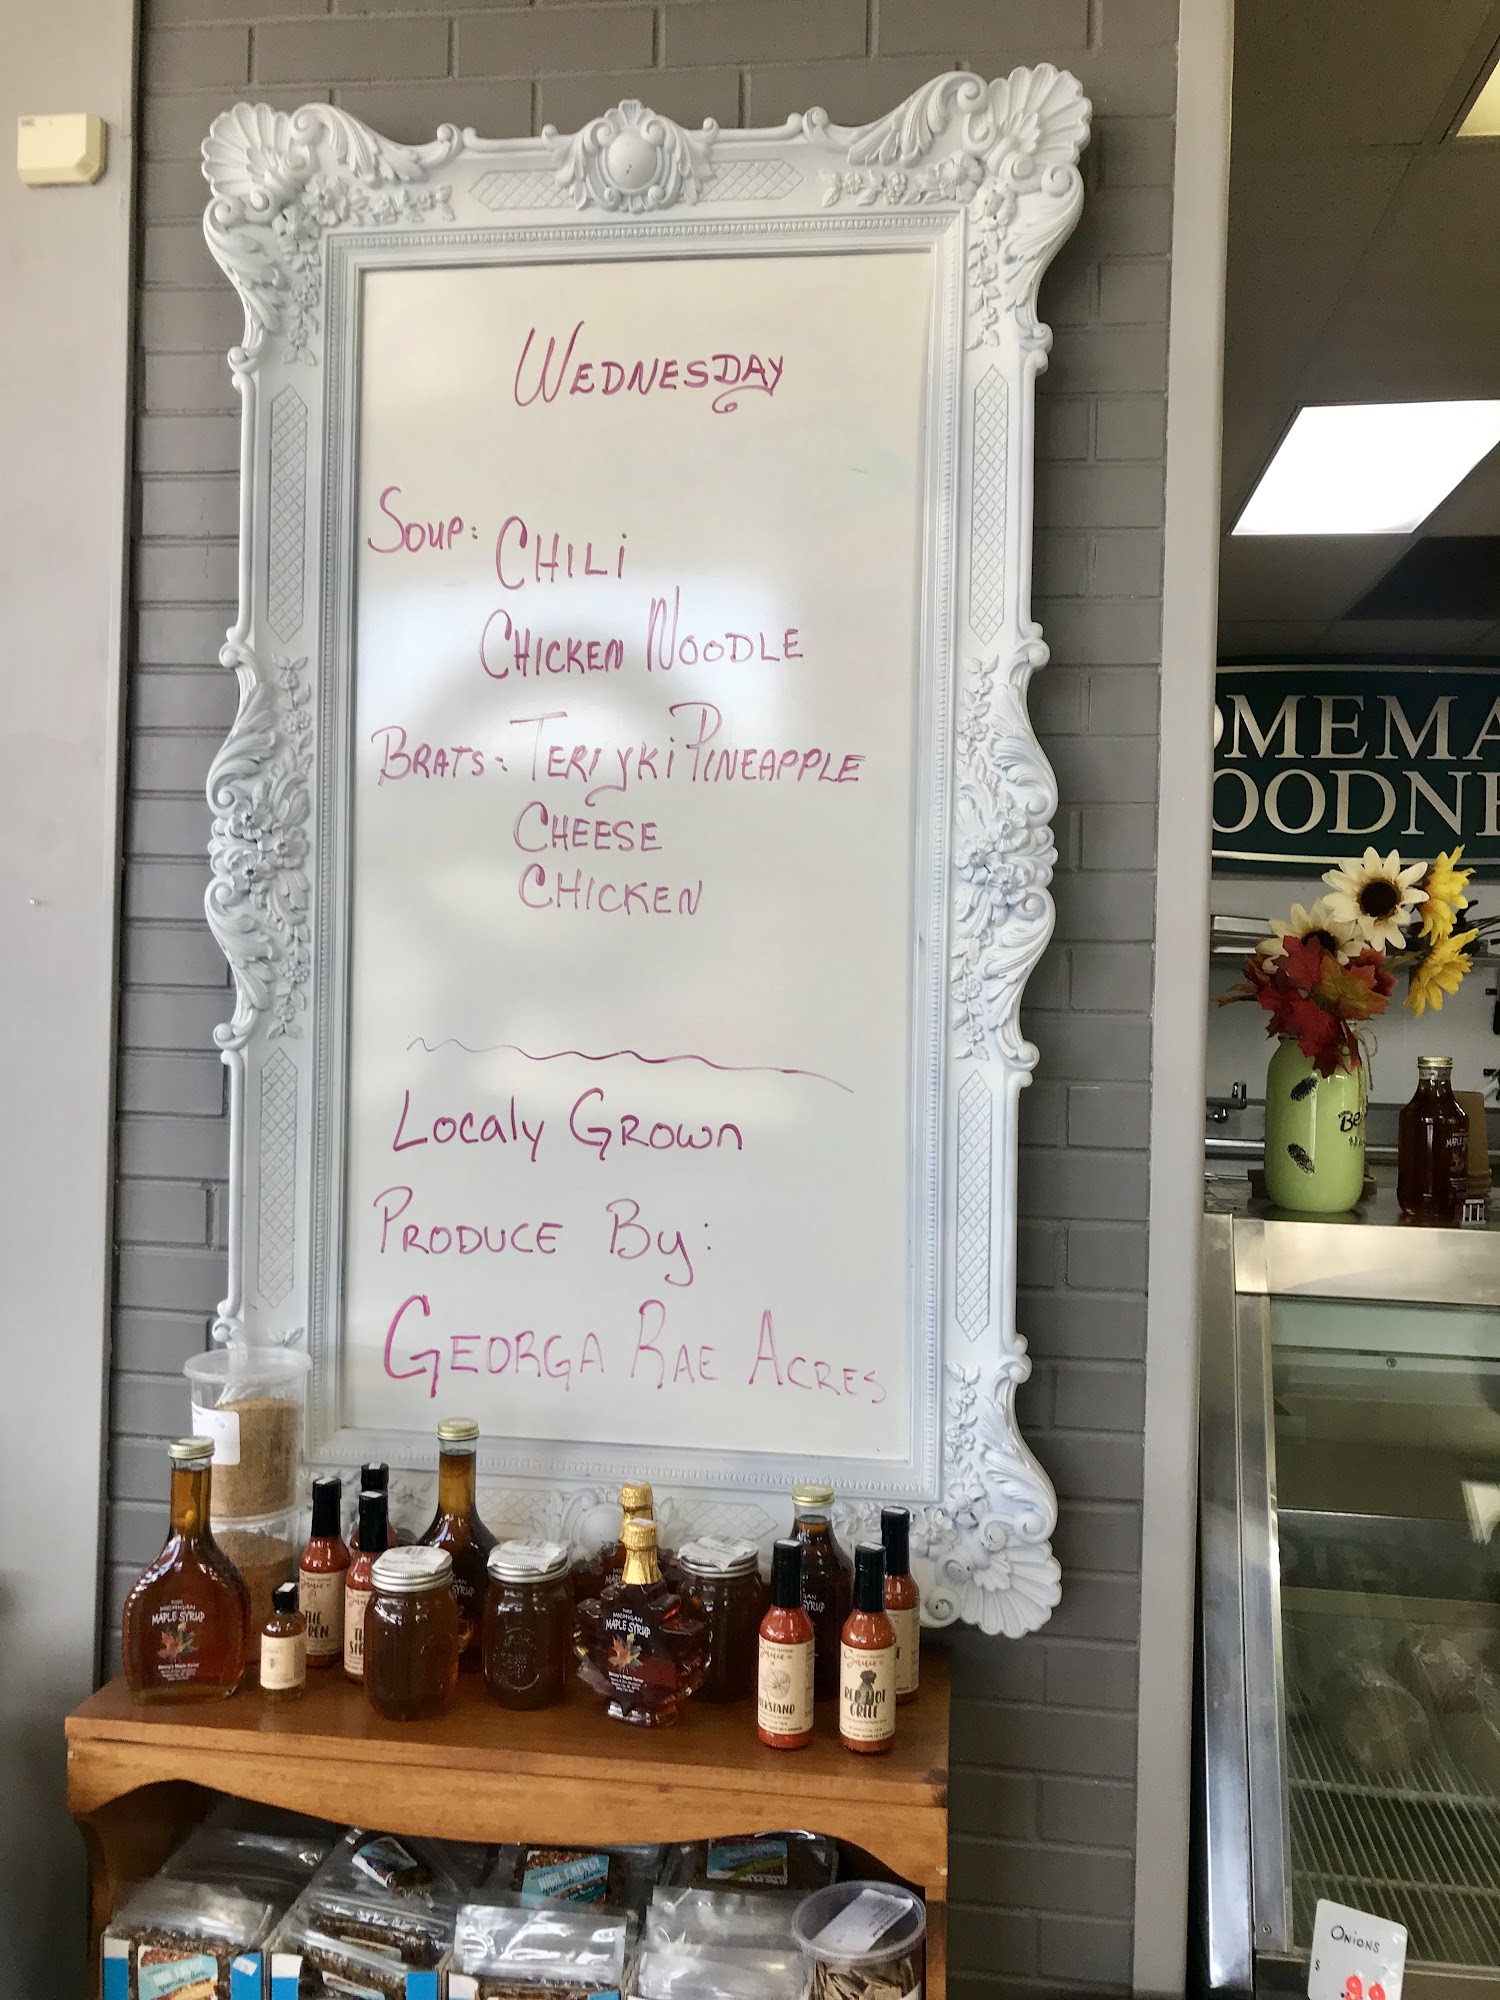 Wednesday
Soup: Chili
Chicken Noodle
Brats: Teriyki Pineapple
Cheese
Chicken
Localy Grown
Produce By:
Georga Rae Acres
OMEMA
OODNE
Be
MICHIGAN
MAPLE SYRUP
MAPLE SYRUP
MICHIGAN
MAPLE SYRUP
SYRUP
Sauce
THE
Sauce
RED HOT
HIGH-ENERGY
ONIONS
$ .99